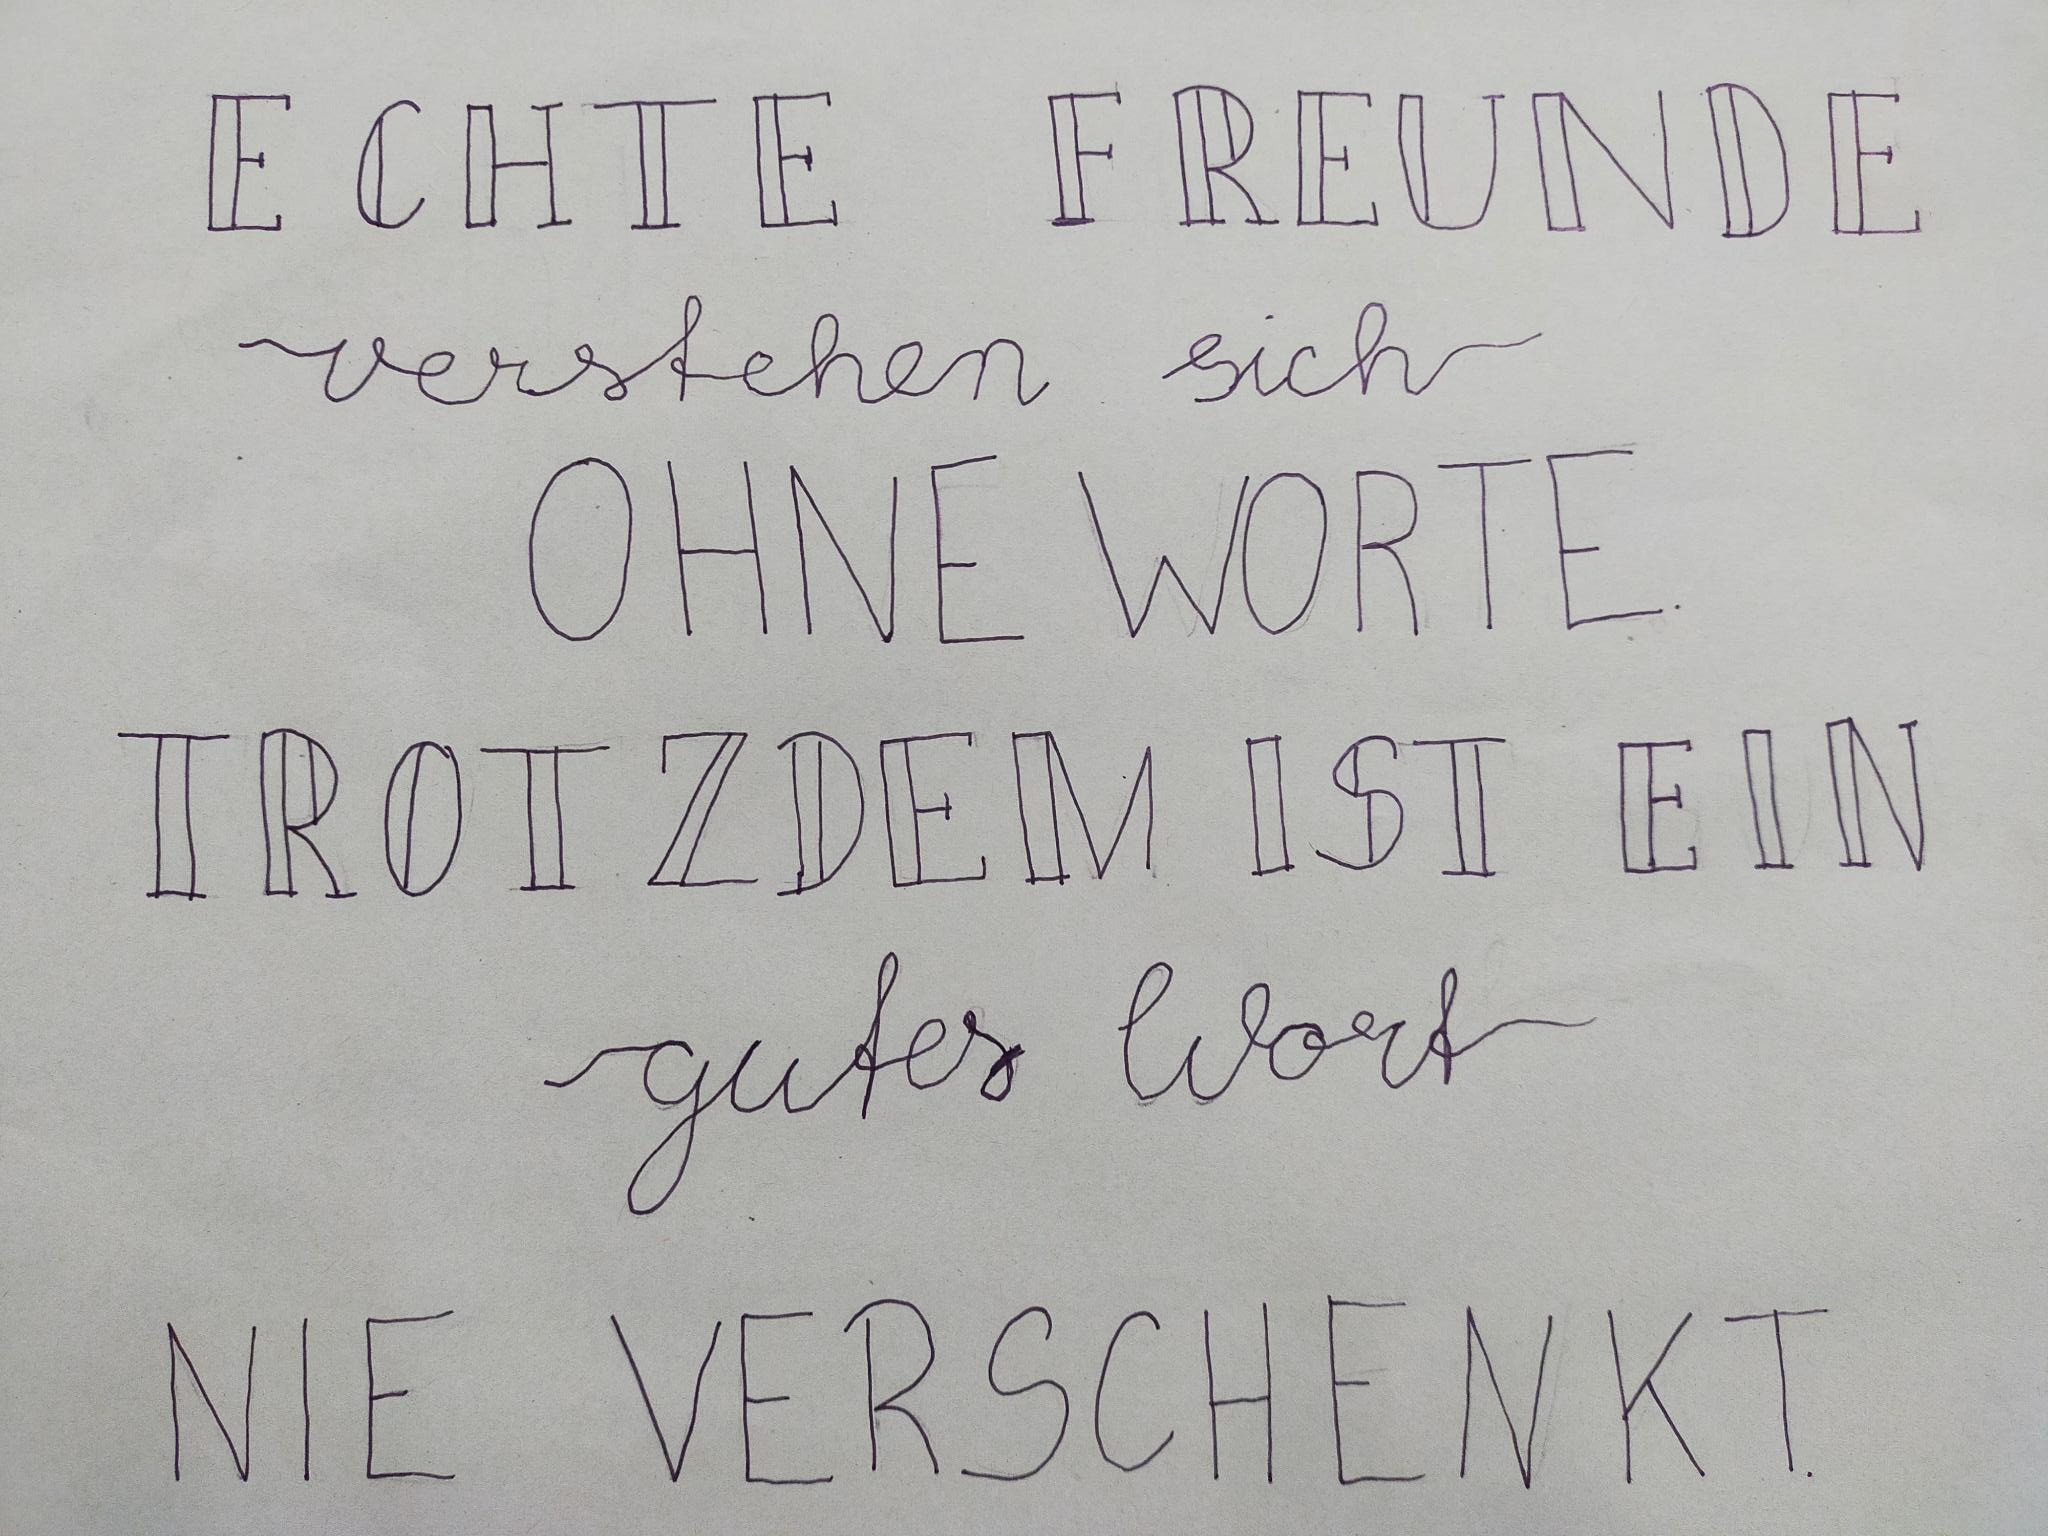 ECHTE FREUNDE
verstehen sich
OHNE WORTE.
TROTZDEM IST EIN
gutes Wort
NIE VERSCHENKT.